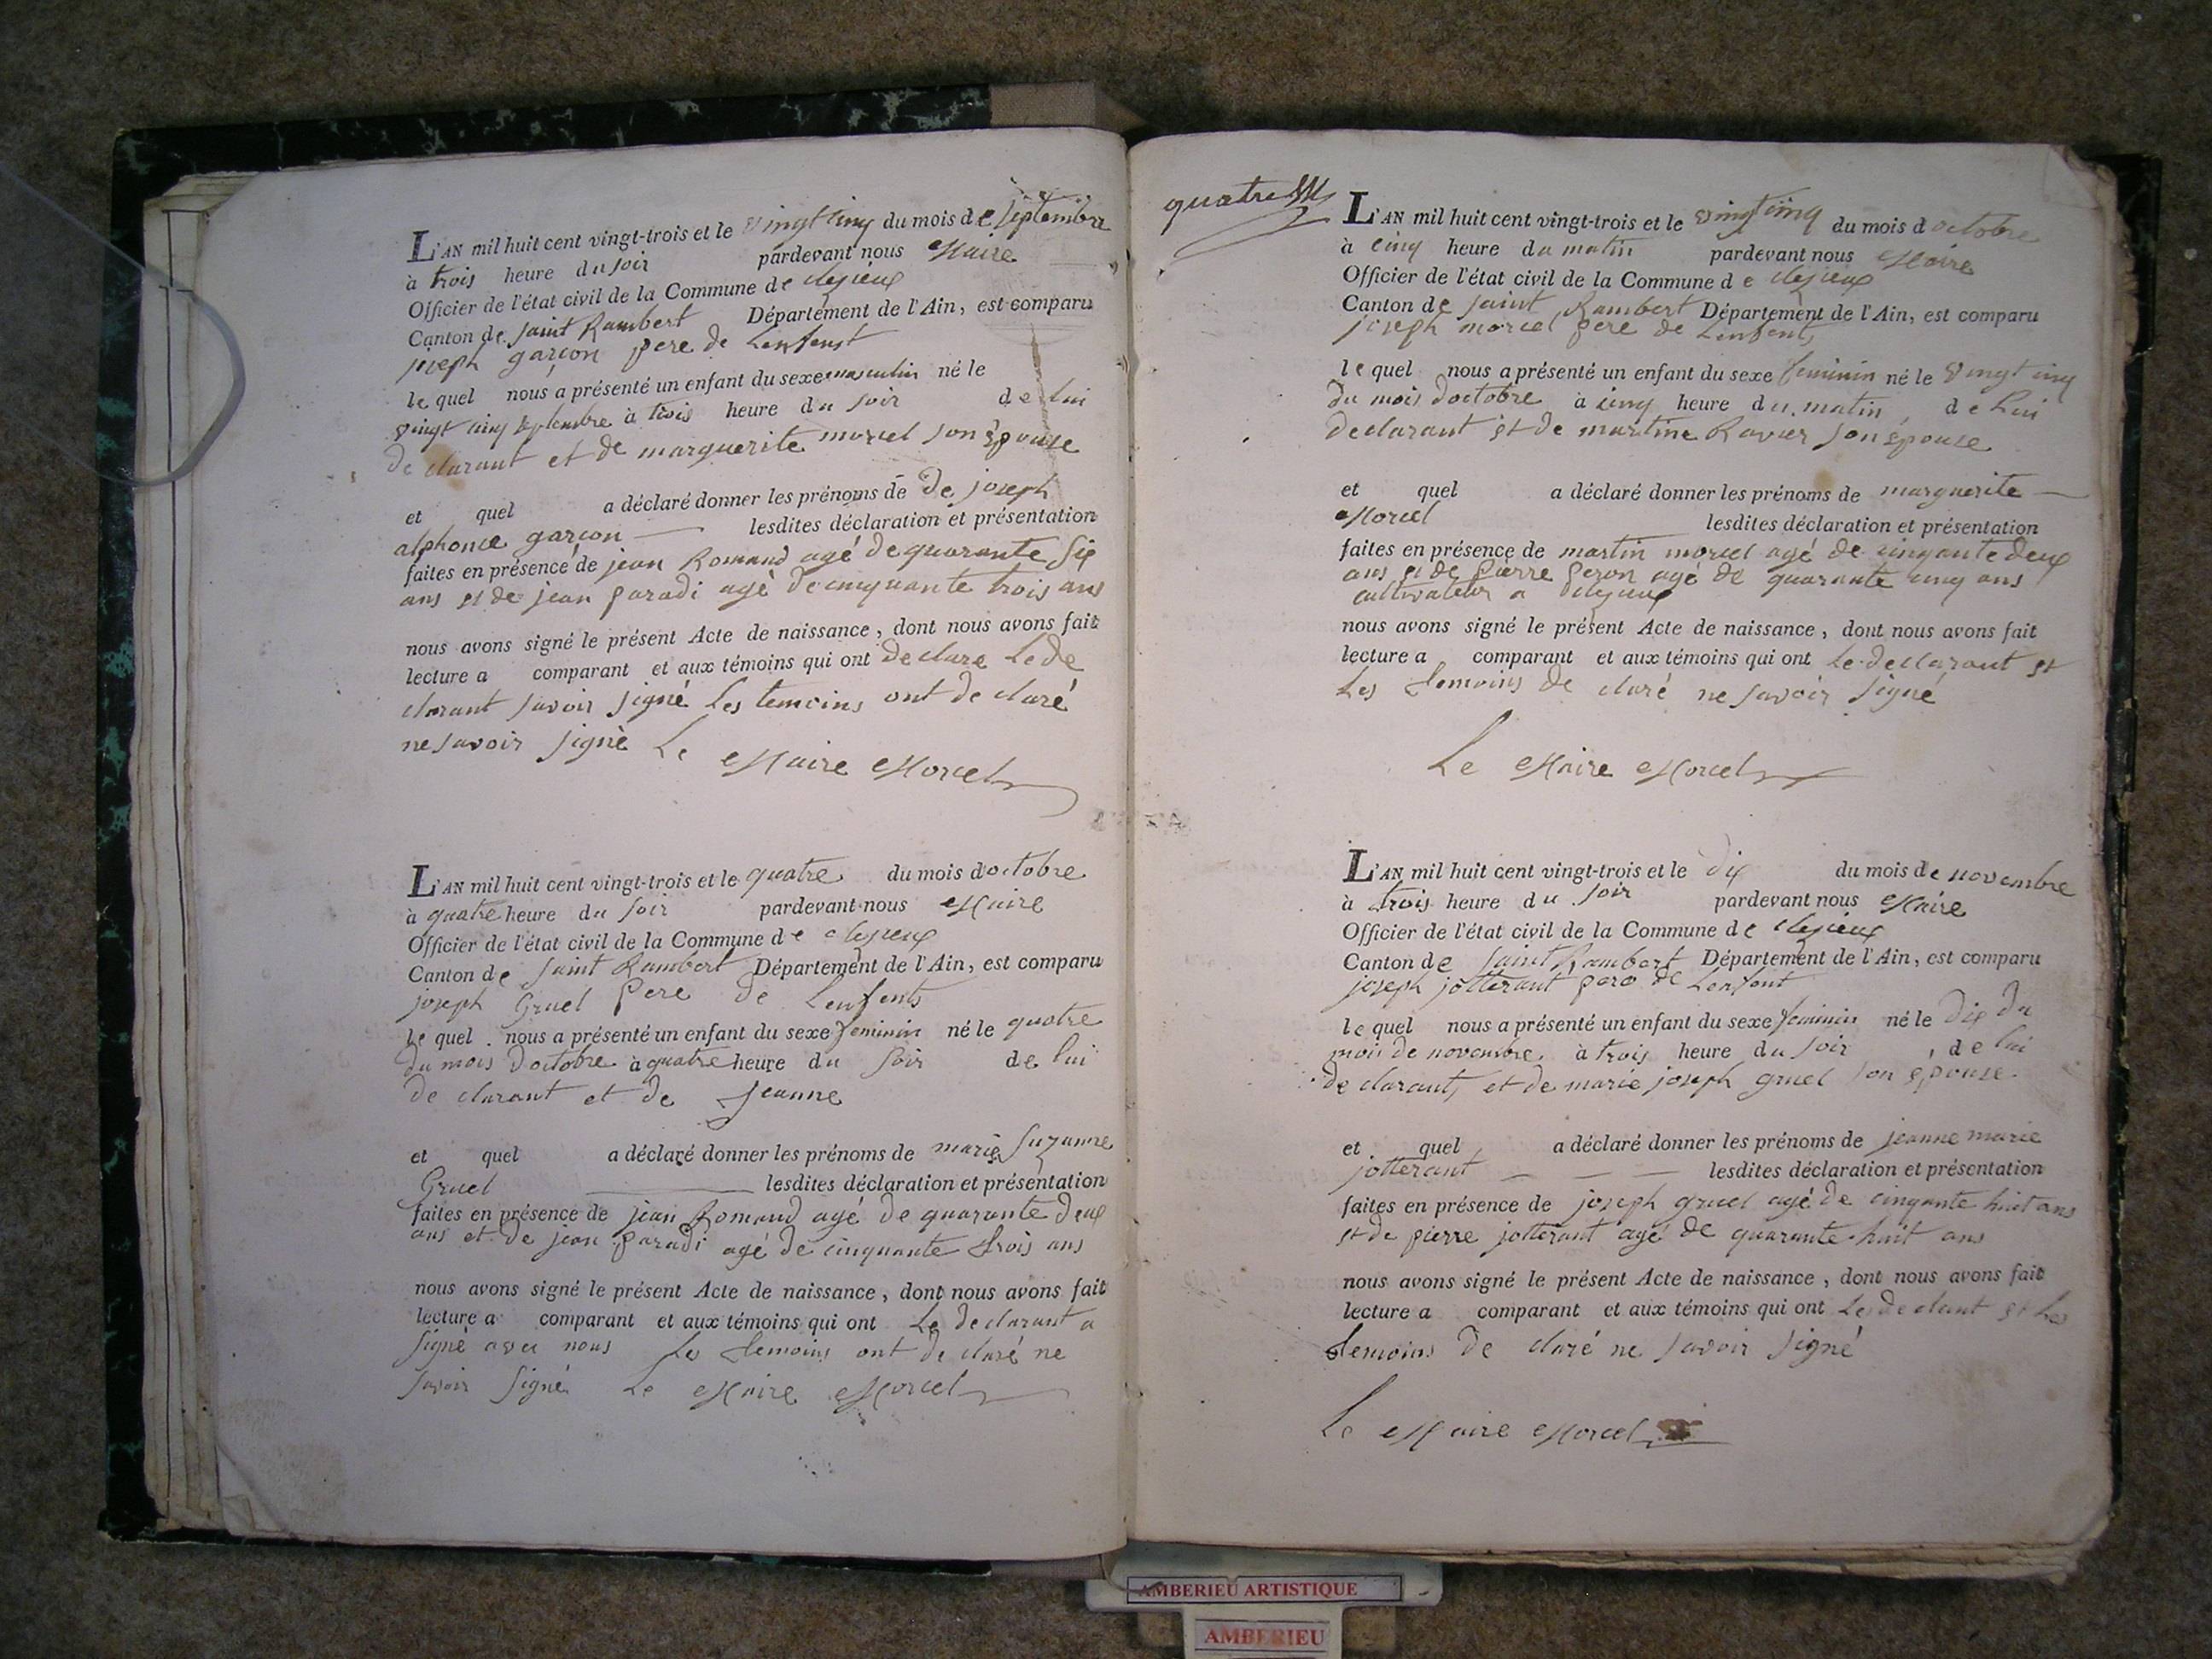 L'AN mil huit cent vingt-trois et le vingt cinq du mois de Septembre
à trois heure du soir pardevant nous Maire
Officier de l'état civil de la Commune de clezieux
Canton de Saint Rambert Département de l'Ain, est comparu
joseph garçon pere de Lenfent
le quel nous a présenté un enfant du sexe masculin né le
vingt cinq septembre à trois heure du soir de lui
de clarant et de marguerite morcel son épouse
et quel a déclaré donner les prénoms de De joseph
alphonce garcon lesdites déclaration et présentation
faites en présence de jean Romand agé de quarante six
ans et de jean paradi agé de cinquante trois ans
nous avons signé le présent Acte de naissance, dont nous avons fait
lecture a comparant et aux témoins qui ont declare Le de
clarant savoir signé Les temoins ont de claré
ne savoir signé Le Maire Morcel
L'AN mil huit cent vingt-trois et le quatre du mois doctobre
à quatre heure du soir pardevant nous Maire
Officier de l'état civil de la Commune de clezieux
Canton de Saint Rambert Département de l'Ain, est comparu
joseph Gruel Pere de Lenfents
le quel nous a présenté un enfant du sexe feminin né le quatre
du mois doctobre à quatre heure du soir de lui
de clarant et de Jeanne
et quel a déclaré donner les prénoms de marie Suzanne
Gruel lesdites déclaration et présentation
faites en présence de jean Romand agé de quarante deux
ans et de jean paradi agé de cinquante trois ans
nous avons signé le présent Acte de naissance, dont nous avons fait
lecture a comparant et aux témoins qui ont Le declarant a
signé avec nous Les temoins ont de claré ne
savoir signé Le Maire Morcel
quatre
L'AN mil huit cent vingt-trois et le vingt cinq du mois d octobre
à cinq heure du matin pardevant nous Maire
Officier de l'état civil de la Commune de clezieux
Canton de Saint Rambert Département de l'Ain, est comparu
joseph morcel pere de Lenfent
le quel nous a présenté un enfant du sexe feminin né le vingt cinq
du mois doctobre à cinq heure du matin, de lui
declarant et de martine Ravier son épouse
et quel a déclaré donner les prénoms de marguerite
Morcel lesdites déclaration et présentation
faites en présence de martin morcel agé de cinqante deux
ans et de Pierre peron agé de quarante cinq ans
cultivateur a clezieux
nous avons signé le présent Acte de naissance, dont nous avons fait
lecture a comparant et aux témoins qui ont Le declarant et
Les temoins de claré ne savoir signé
Le Maire Morcel
L'AN mil huit cent vingt-trois et le dix du mois de novembre
à trois heure du soir pardevant nous Maire
Officier de l'état civil de la Commune de clezieux
Canton de Saint Rambert Département de l'Ain, est comparu
joseph jotterant pere de Lenfent
le quel nous a présenté un enfant du sexe feminin né le dix du
mois de novembre à trois heure du soir, de lui
de clarant, et de marie joseph gruel son épouse
et quel a déclaré donner les prénoms de jeanne marie
jotterant lesdites déclaration et présentation
faites en présence de joseph gruel agé de cinqante huit ans
et de pierre jotterant agé de quarante huit ans
nous avons signé le présent Acte de naissance, dont nous avons fait
lecture a comparant et aux témoins qui ont Le de clant et Les
temoins de claré ne savoir signé
Le Maire Morcel
AMBERIEU ARTISTIQUE
AMBERIEU